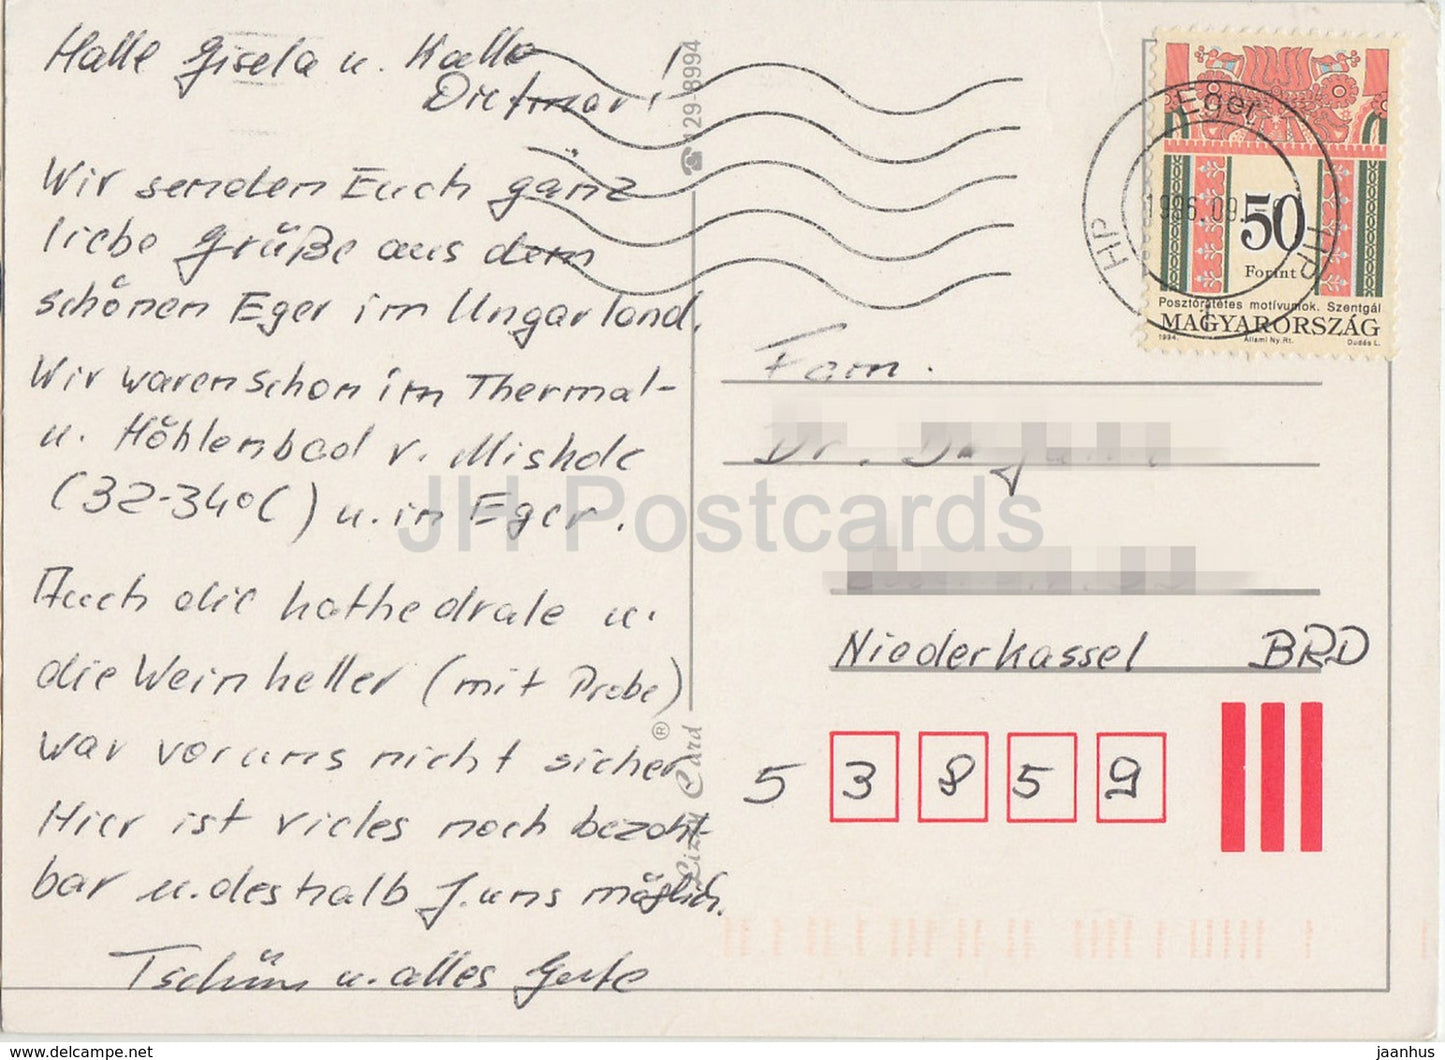 Hallo Gisela u. Hallo
Dietmar!
Wir senden Euch ganz
liebe Grüße aus dem
schönen Eger im Ungarland.
Wir waren schon im Thermal-
u. Höhlenbad v. Miskolc
(32-34°C) u. in Eger.
Auch die Kathedrale u.
die Weinkeller (mit Probe)
war vor uns nicht sicher
Hier ist vieles noch bezahl-
bar u. deshalb f. uns möglich.
Tschüss u. alles Gute
☎ 129-8994
Lizzy Card ®
Eger
HP
HP
1
50
Forint
Posztórátétes motívumok. Szentgál
MAGYARORSZÁG
1994. Állami Ny. Rt. Dudás L.
Fam.
Dr.
Niederkassel BRD
5 3 8 5 9
JH Postcards
https://www.delcampe.net/en_GB/collectibles/
jaanhus